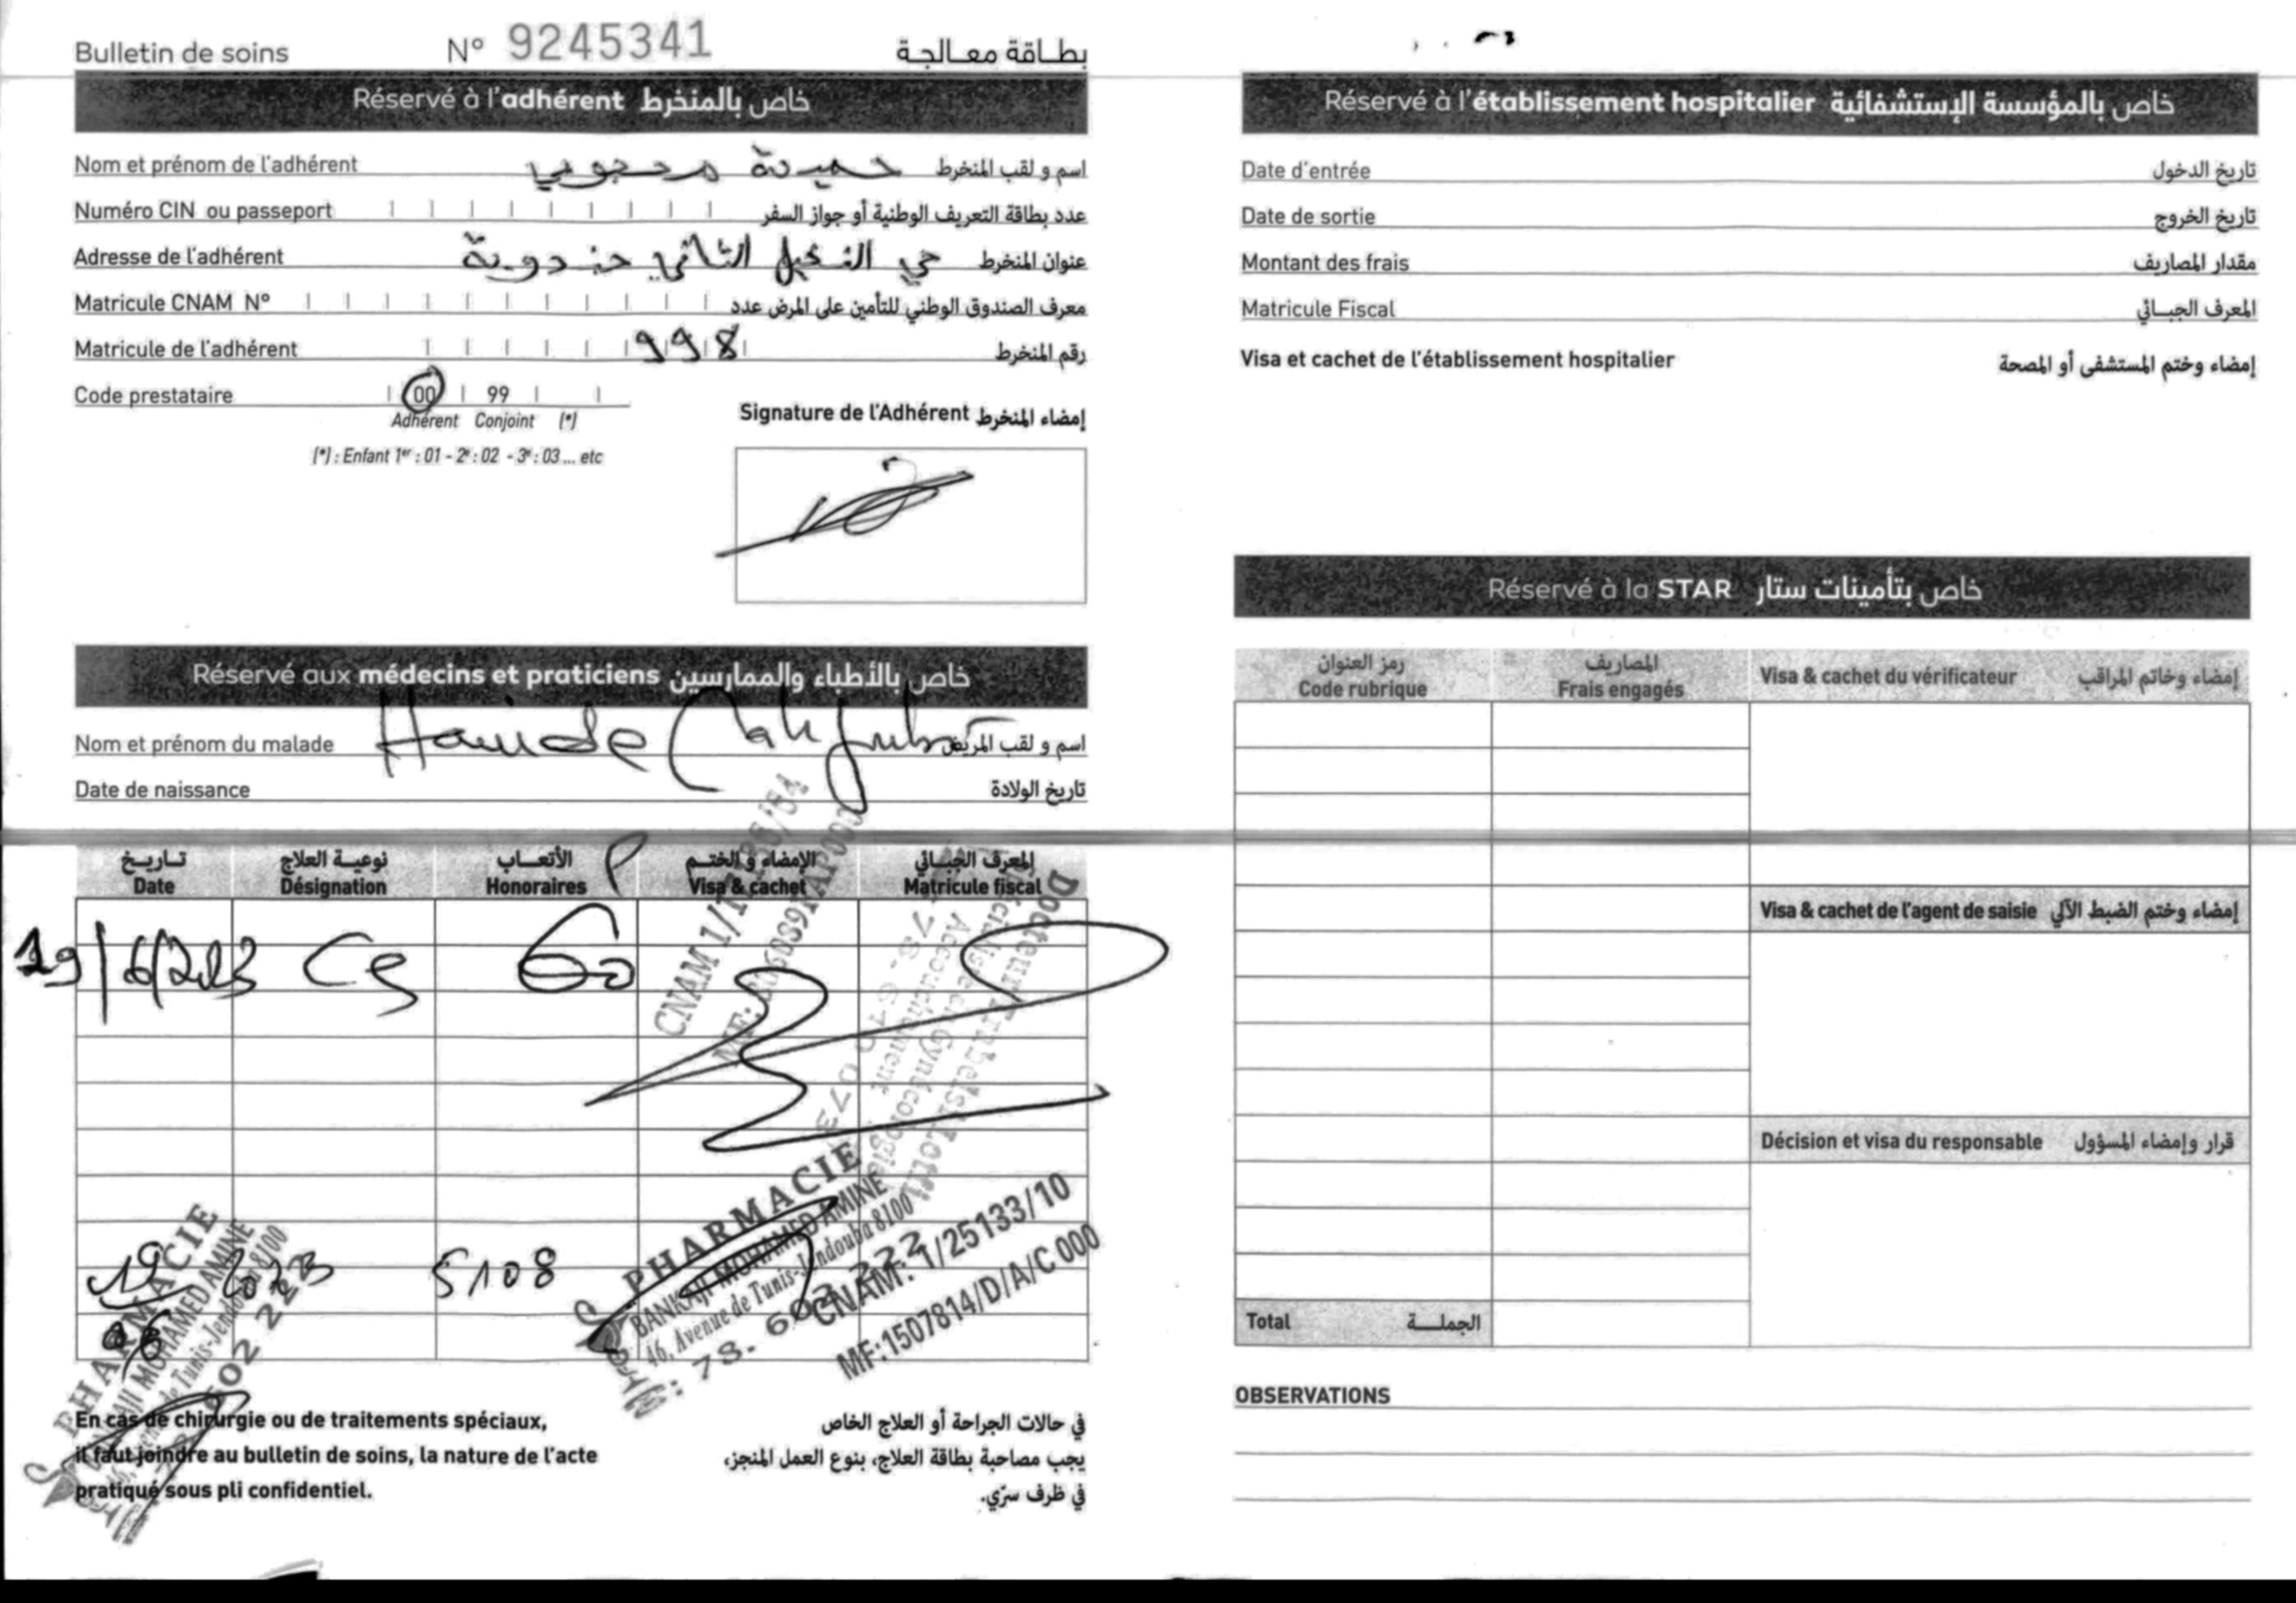 Bulletin de soins N° 9245341 بطاقة معالجة
Réservé à l'adhérent خاص بالمنخرط
Nom et prénom de l'adhérent حميدة محجوبي اسم و لقب المنخرط
Numéro CIN ou passeport عدد بطاقة التعريف الوطنية أو جواز السفر
Adresse de l'adhérent حي النخيل الثاني جندوبة عنوان المنخرط
Matricule CNAM N° معرف الصندوق الوطني للتأمين على المرض عدد
Matricule de l'adhérent 998 رقم المنخرط
Code prestataire 00 99
Adhérent Conjoint (*)
(*) : Enfant 1er : 01 - 2e : 02 - 3e : 03 ... etc
Signature de l'Adhérent إمضاء المنخرط
Réservé aux médecins et praticiens خاص بالأطباء والممارسين
Nom et prénom du malade اسم و لقب المريض
Date de naissance تاريخ الولادة
تاريخ نوعية العلاج الأتعاب الإمضاء و الختم المعرف الجبائي
Date Désignation Honoraires Visa & cachet Matricule fiscal
19/6/2023 Cs 60
Docteur
Gynécologie
Accouchement
19 2023 5108
06
PHARMACIE
BANKAJI MOHAMED AMINE
46, Avenue de Tunis-Jendouba 8100
78. 602 222
CNAM: 1/25133/10
MF:1507814/D/A/C 000
PHARMACIE
MOHAMED AMINE
de Tunis-Jendouba 8100
602 222
En cas de chirurgie ou de traitements spéciaux,
il faut joindre au bulletin de soins, la nature de l'acte
pratiqué sous pli confidentiel.
في حالات الجراحة أو العلاج الخاص
يجب مصاحبة بطاقة العلاج، بنوع العمل المنجز،
في ظرف سرّي.
Réservé à l'établissement hospitalier خاص بالمؤسسة الإستشفائية
Date d'entrée تاريخ الدخول
Date de sortie تاريخ الخروج
Montant des frais مقدار المصاريف
Matricule Fiscal المعرف الجبائي
Visa et cachet de l'établissement hospitalier إمضاء وختم المستشفى أو المصحة
Réservé à la STAR خاص بتأمينات ستار
رمز العنوان المصاريف
Code rubrique Frais engagés Visa & cachet du vérificateur إمضاء وخاتم المراقب
Visa & cachet de l'agent de saisie إمضاء وختم الضبط الآلي
Décision et visa du responsable قرار وإمضاء المسؤول
Total الجملة
OBSERVATIONS